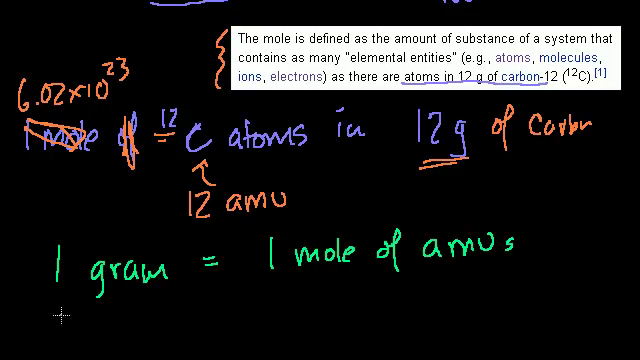 The mole is defined as the amount of substance of a system that
contains as many "elemental entities" (e.g., atoms, molecules,
ions, electrons) as there are atoms in 12 g of carbon-12 (¹²C).[1]
6.02×10²³
1 mole of ¹²C atoms in 12g of Carbon
12 amu
1 gram = 1 mole of amus